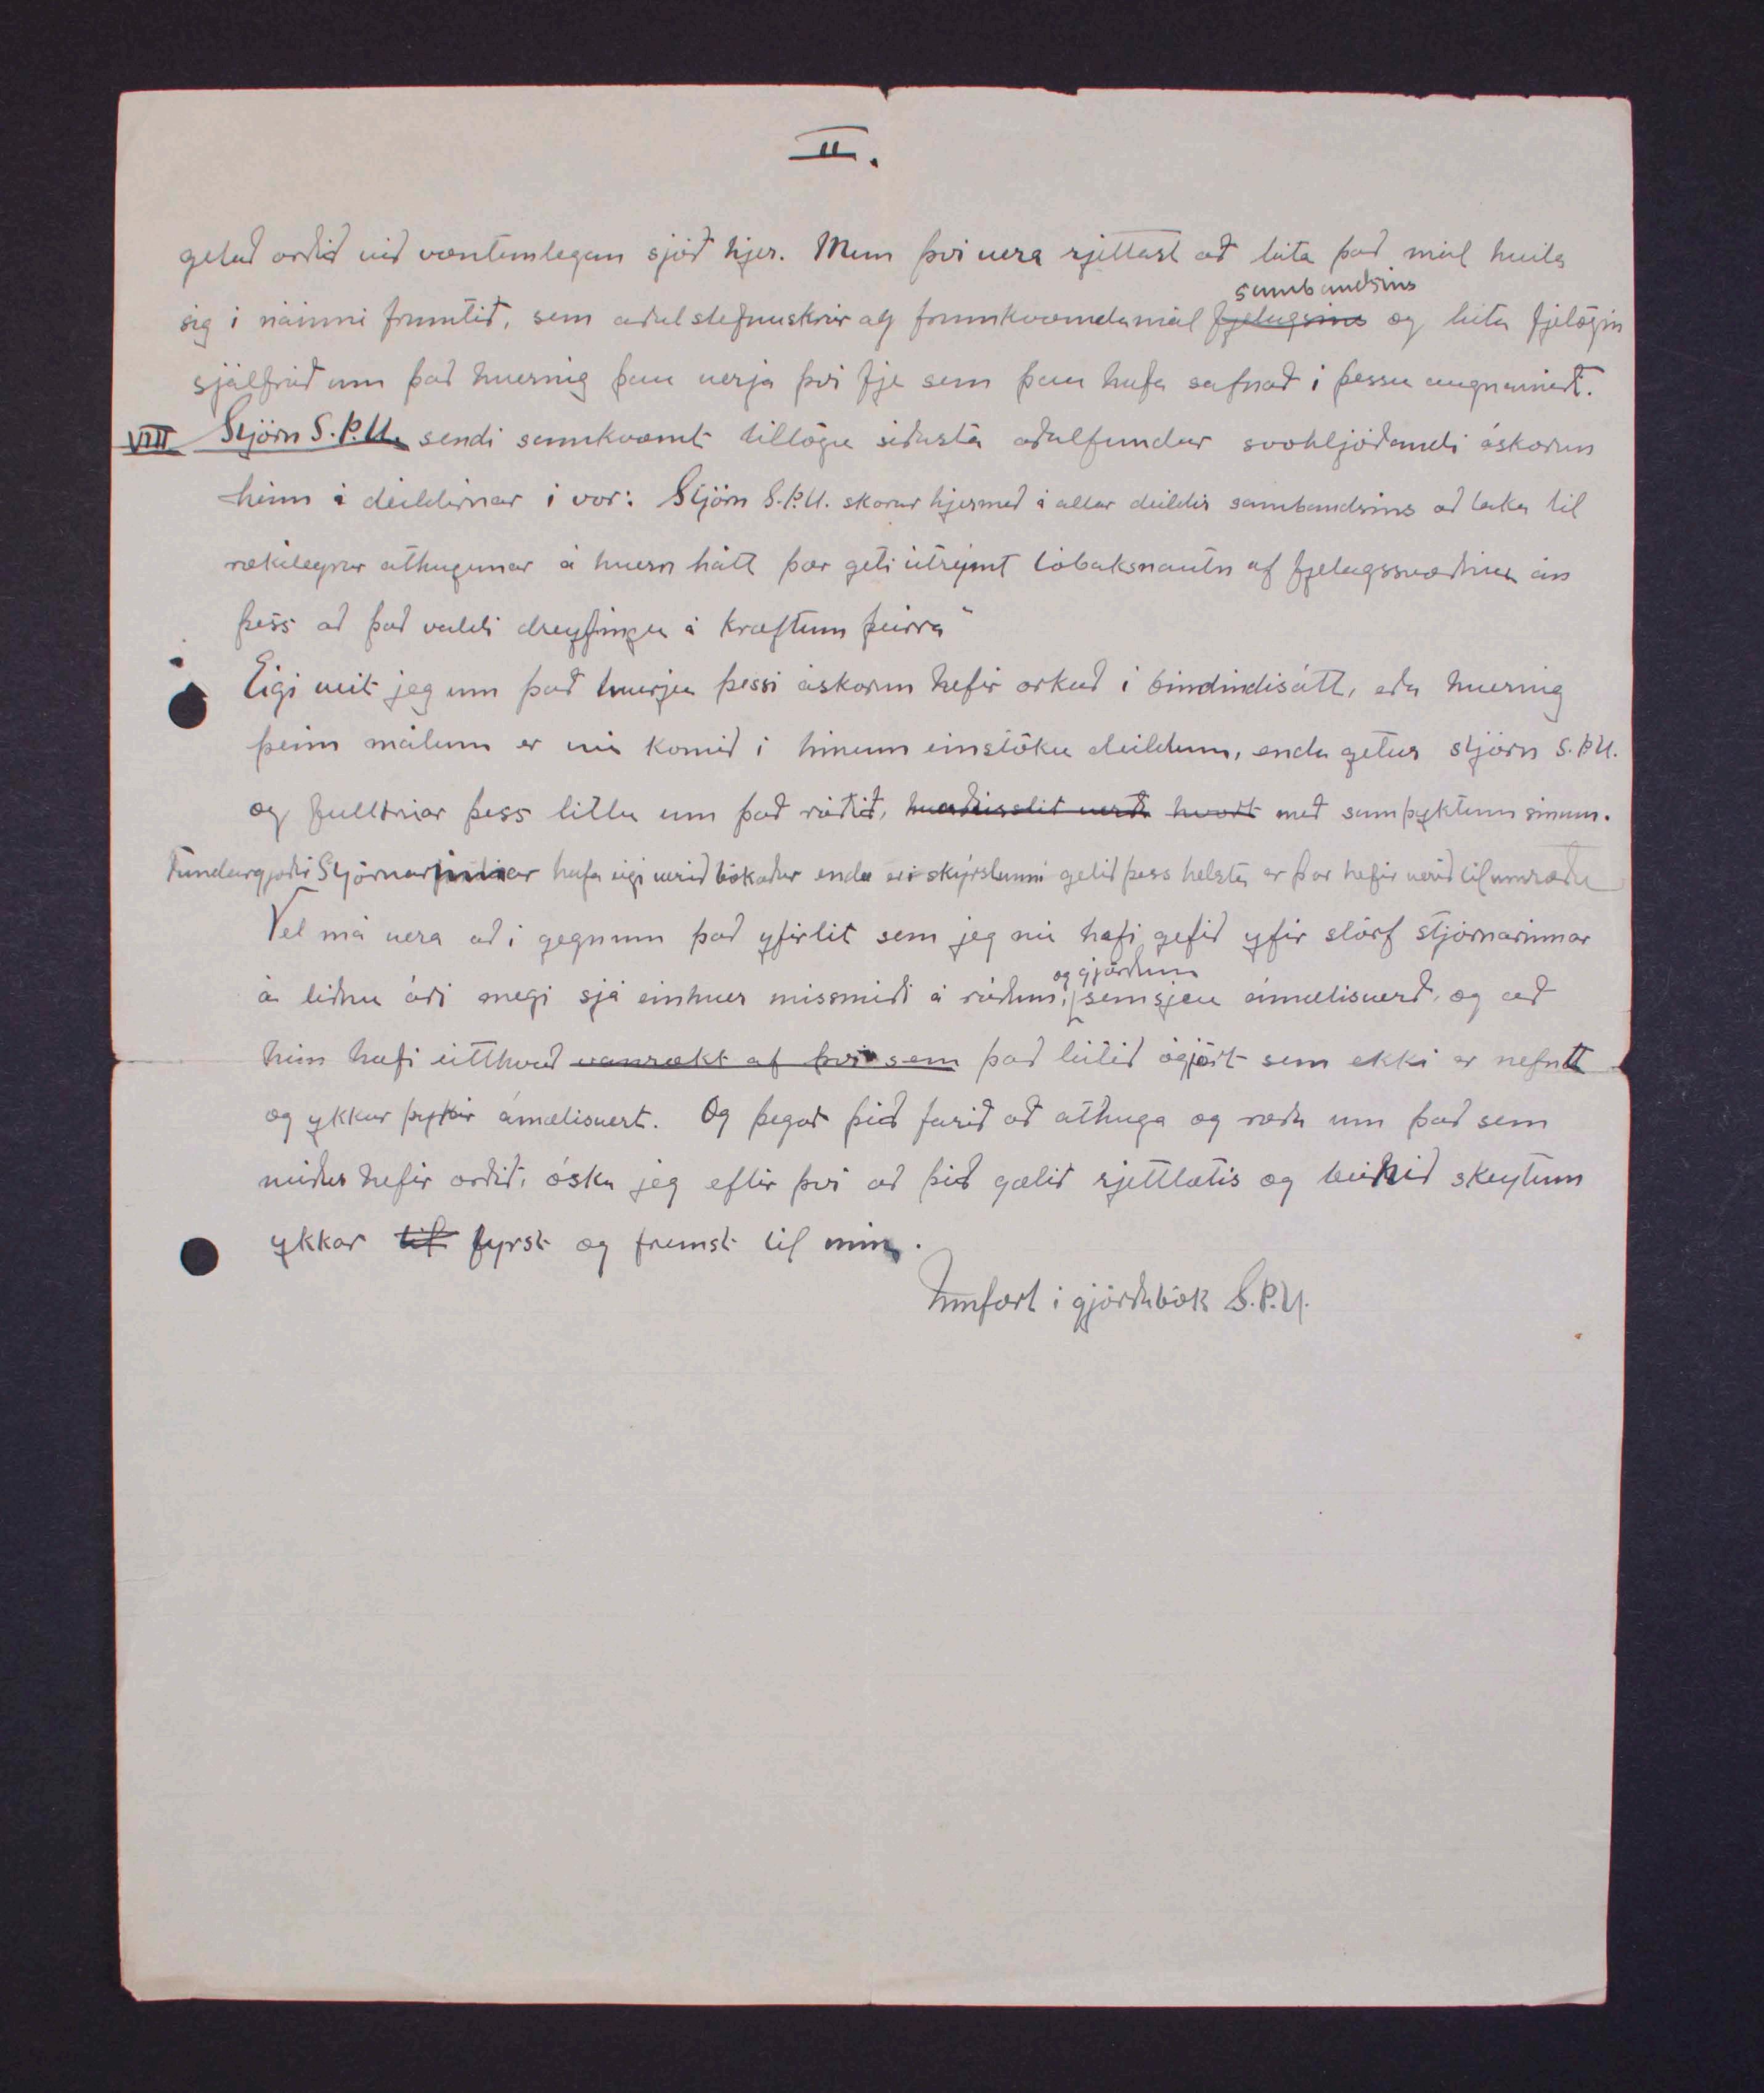 II.
getað orðið við væntanlegan sjóð hjer. Mun því vera rjettast að láta það mál hvíla
sig í náinni framtíð, sem aðal stefnuskrár og framkvæmdamál ~~fjelagsins~~ sambandsins og láta fjelögin
sjálfráð um það hvernig þau verja því fje sem þau hafa safnað í þessu augnamiði.
VIII Stjórn S.Þ.U. sendi samkvæmt tillögu síðasta aðalfundar svohljóðandi áskorun
heim á deildirnar í vor: Stjórn S.Þ.U. skorar hjermeð á allar deildir sambandsins að taka til
rækilegrar athugunar á hvern hátt þær geti útrýmt tóbaksnautn af fjelagssvæðinu án
þess að það valdi dreyfingu á kröftum þeirra"
Eigi veit jeg um það hverju þessi áskorun hefir orkað í bindindisátt, eða hvernig
þeim málum er nú komið í hinum einstöku deildum, enda getur stjórn S.Þ.U.
og fulltrúar þess litlu um það ráðið, ~~hvort~~ með samþyktum sínum.
Fundargjörðir Stjórnarinnar hafa eigi verið bókaðar enda er í skýrslunni getið þess helsta er þar hefir verið til umræðu
Vel má vera að í gegnum það yfirlit sem jeg nú hafi gefið yfir störf stjórnarinnar
á liðnu ári megi sjá einhver missmíði á ráðum, og gjörðum sem sjeu ámælisverð, og að
hún hafi eitthvað ~~vanrækt af því sem~~ það látið ógjört sem ekki er nefnt
og ykkur þykir ámælisvert. Og þegar þið farið að athuga og ræða um það sem
miður hefir orðið, óska jeg eftir því að þið gætið rjettlætis og beinið skeytum
ykkar ~~til~~ fyrst og fremst til mín.
Innfært í gjörðabók S.Þ.U.